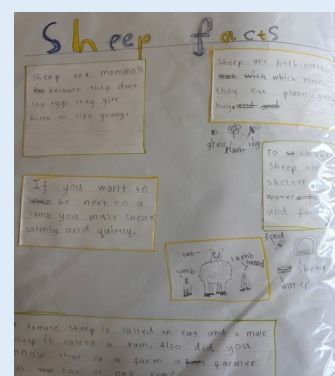 Sheep facts
Sheep are mammals
because they dont
lay eggs they give
birth to life young.
Sheep are herbivores
which means
they eat plants
hay
grass plant hay
If you want to
be next to a
lamb you must sneak
calmly and quietly.
To
Sheep
shelter
water
and food
food
shelter
water
lamb
lamb
female sheep is called an ewe and a male
sheep is called a ram. Also did you
know that on a farm a farmer
two or one ram?